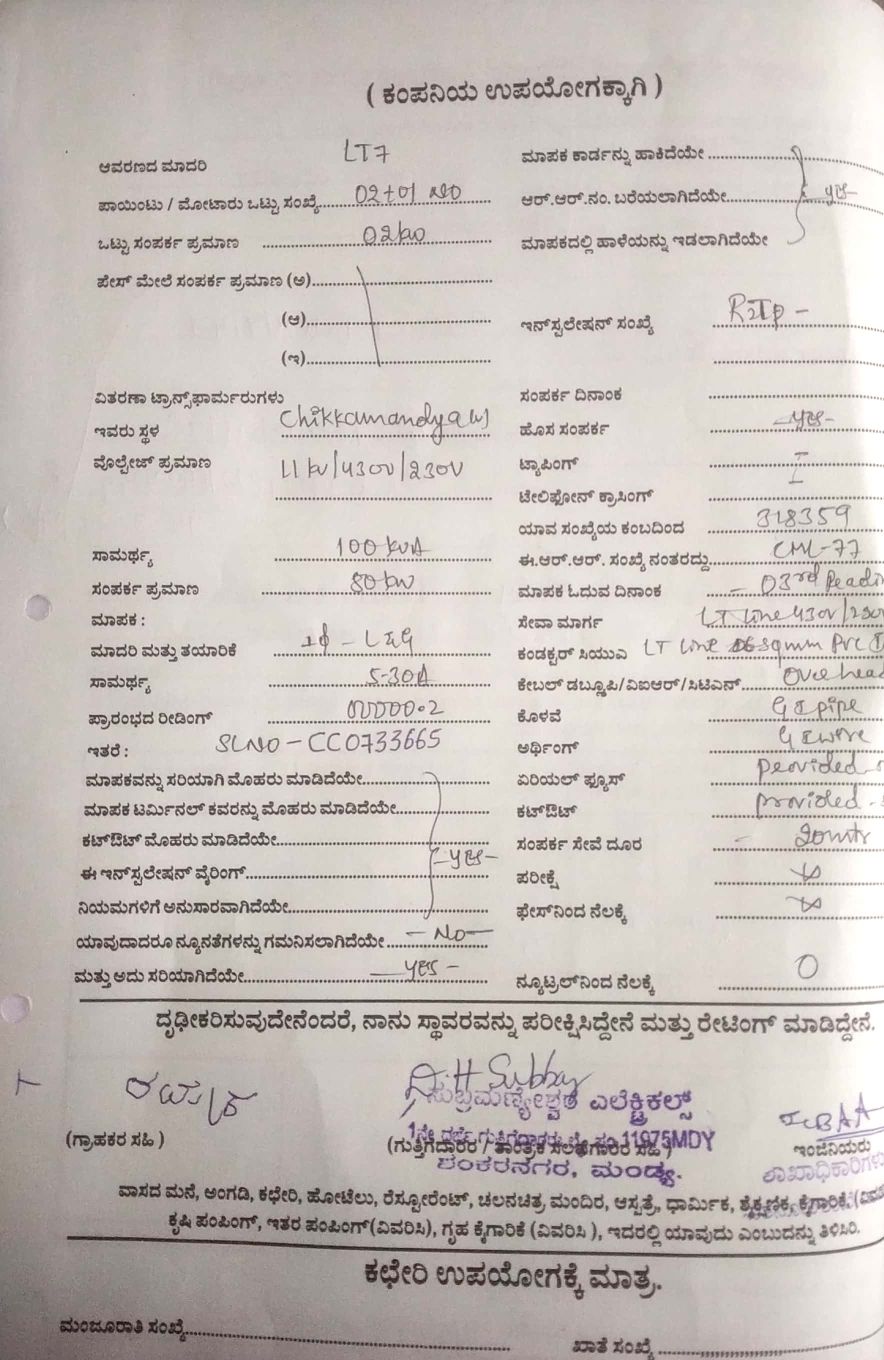 ( ಕಂಪನಿಯ ಉಪಯೋಗಕ್ಕಾಗಿ )
ಆವರಣದ ಮಾದರಿ LT7
ಮಾಪಕ ಕಾರ್ಡನ್ನು ಹಾಕಿದೆಯೇ
ಪಾಯಿಂಟು / ಮೋಟಾರು ಒಟ್ಟು ಸಂಖ್ಯೆ 02+01 NO
ಆರ್.ಆರ್.ನಂ. ಬರೆಯಲಾಗಿದೆಯೇ yes-
ಒಟ್ಟು ಸಂಪರ್ಕ ಪ್ರಮಾಣ 02kw
ಮಾಪಕದಲ್ಲಿ ಹಾಳೆಯನ್ನು ಇಡಲಾಗಿದೆಯೇ
ಪೇಸ್ ಮೇಲೆ ಸಂಪರ್ಕ ಪ್ರಮಾಣ (ಅ)
(ಆ)
ಇನ್‌ಸ್ಪಲೇಷನ್ ಸಂಖ್ಯೆ
(ಇ)
ವಿತರಣಾ ಟ್ರಾನ್ಸ್‌ಫಾರ್ಮರುಗಳು
ಸಂಪರ್ಕ ದಿನಾಂಕ
ಇವರು ಸ್ಥಳ Chikkamandya
ಹೊಸ ಸಂಪರ್ಕ -yes-
ವೊಲ್ಟೇಜ್ ಪ್ರಮಾಣ 11kv/430v/230v
ಟ್ಯಾಪಿಂಗ್
ಟೇಲಿಫೋನ್ ಕ್ರಾಸಿಂಗ್
ಯಾವ ಸಂಖ್ಯೆಯ ಕಂಬದಿಂದ 318359
ಸಾಮರ್ಥ್ಯ 100 kVA
ಈ.ಆರ್.ಆರ್. ಸಂಖ್ಯೆ ನಂತರದ್ದು CML-77
ಸಂಪರ್ಕ ಪ್ರಮಾಣ 80 kw
ಮಾಪಕ ಓದುವ ದಿನಾಂಕ - 03rd Readin
ಮಾಪಕ :
ಸೇವಾ ಮಾರ್ಗ LT Line 430v/230v
ಮಾದರಿ ಮತ್ತು ತಯಾರಿಕೆ 1ф - L&G
ಕಂಡಕ್ಟರ್ ಸಿಯುಎ LT Line 06 sqmm PVC
ಸಾಮರ್ಥ್ಯ 5-30A
ಕೇಬಲ್ ಡಬ್ಲ್ಯೂಪಿ/ವಿಐಆರ್/ಸಿಟಿಎನ್ Over head
ಪ್ರಾರಂಭದ ರೀಡಿಂಗ್ 00000.2
ಕೊಳವೆ GI pipe
ಇತರೆ : SLNO-CC0733665
ಅರ್ಥಿಂಗ್ GI wire
ಮಾಪಕವನ್ನು ಸರಿಯಾಗಿ ಮೊಹರು ಮಾಡಿದೆಯೇ
ಏರಿಯಲ್ ಫ್ಯೂಸ್ provided
ಮಾಪಕ ಟರ್ಮಿನಲ್ ಕವರನ್ನು ಮೊಹರು ಮಾಡಿದೆಯೇ
ಕಟ್‌ಔಟ್ provided -
ಕಟ್‌ಔಟ್ ಮೊಹರು ಮಾಡಿದೆಯೇ
ಸಂಪರ್ಕ ಸೇವೆ ದೂರ - 20mtr
ಈ ಇನ್‌ಸ್ಪಲೇಷನ್ ವೈರಿಂಗ್ -yes-
ಪರೀಕ್ಷೆ
ನಿಯಮಗಳಿಗೆ ಅನುಸಾರವಾಗಿದೆಯೇ
ಫೇಸ್‌ನಿಂದ ನೆಲಕ್ಕೆ
ಯಾವುದಾದರೂ ನ್ಯೂನತೆಗಳನ್ನು ಗಮನಿಸಲಾಗಿದೆಯೇ -NO-
ಮತ್ತು ಅದು ಸರಿಯಾಗಿದೆಯೇ -YES-
ನ್ಯೂಟ್ರಲ್‌ನಿಂದ ನೆಲಕ್ಕೆ 0
ದೃಢೀಕರಿಸುವುದೇನೆಂದರೆ, ನಾನು ಸ್ಥಾವರವನ್ನು ಪರೀಕ್ಷಿಸಿದ್ದೇನೆ ಮತ್ತು ರೇಟಿಂಗ್ ಮಾಡಿದ್ದೇನೆ.
ಸುಬ್ರಮಣ್ಯೇಶ್ವರ ಎಲೆಕ್ಟ್ರಿಕಲ್ಸ್
1ನೇ ದರ್ಜೆ ಗುತ್ತಿಗೆದಾರರು 11975MDY
(ಗ್ರಾಹಕರ ಸಹಿ )
(ಗುತ್ತಿಗೆದಾರರ / ತಾಂತ್ರಿಕ ಸಲಹೆಗಾರರ ಸಹಿ )
ಇಂಜಿನಿಯರು
ಶಂಕರನಗರ, ಮಂಡ್ಯ.
ಶಾಖಾಧಿಕಾರಿಗಳು
ವಾಸದ ಮನೆ, ಅಂಗಡಿ, ಕಛೇರಿ, ಹೋಟೆಲು, ರೆಸ್ಟೋರೆಂಟ್, ಚಲನಚಿತ್ರ ಮಂದಿರ, ಆಸ್ಪತ್ರೆ, ಧಾರ್ಮಿಕ, ಶೈಕ್ಷಣಿಕ, ಕೈಗಾರಿಕೆ,
ಕೃಷಿ ಪಂಪಿಂಗ್, ಇತರ ಪಂಪಿಂಗ್(ವಿವರಿಸಿ), ಗೃಹ ಕೈಗಾರಿಕೆ (ವಿವರಿಸಿ ), ಇದರಲ್ಲಿ ಯಾವುದು ಎಂಬುದನ್ನು ತಿಳಿಸಿರಿ.
ಕಛೇರಿ ಉಪಯೋಗಕ್ಕೆ ಮಾತ್ರ.
ಮಂಜೂರಾತಿ ಸಂಖ್ಯೆ
ಖಾತೆ ಸಂಖ್ಯೆ